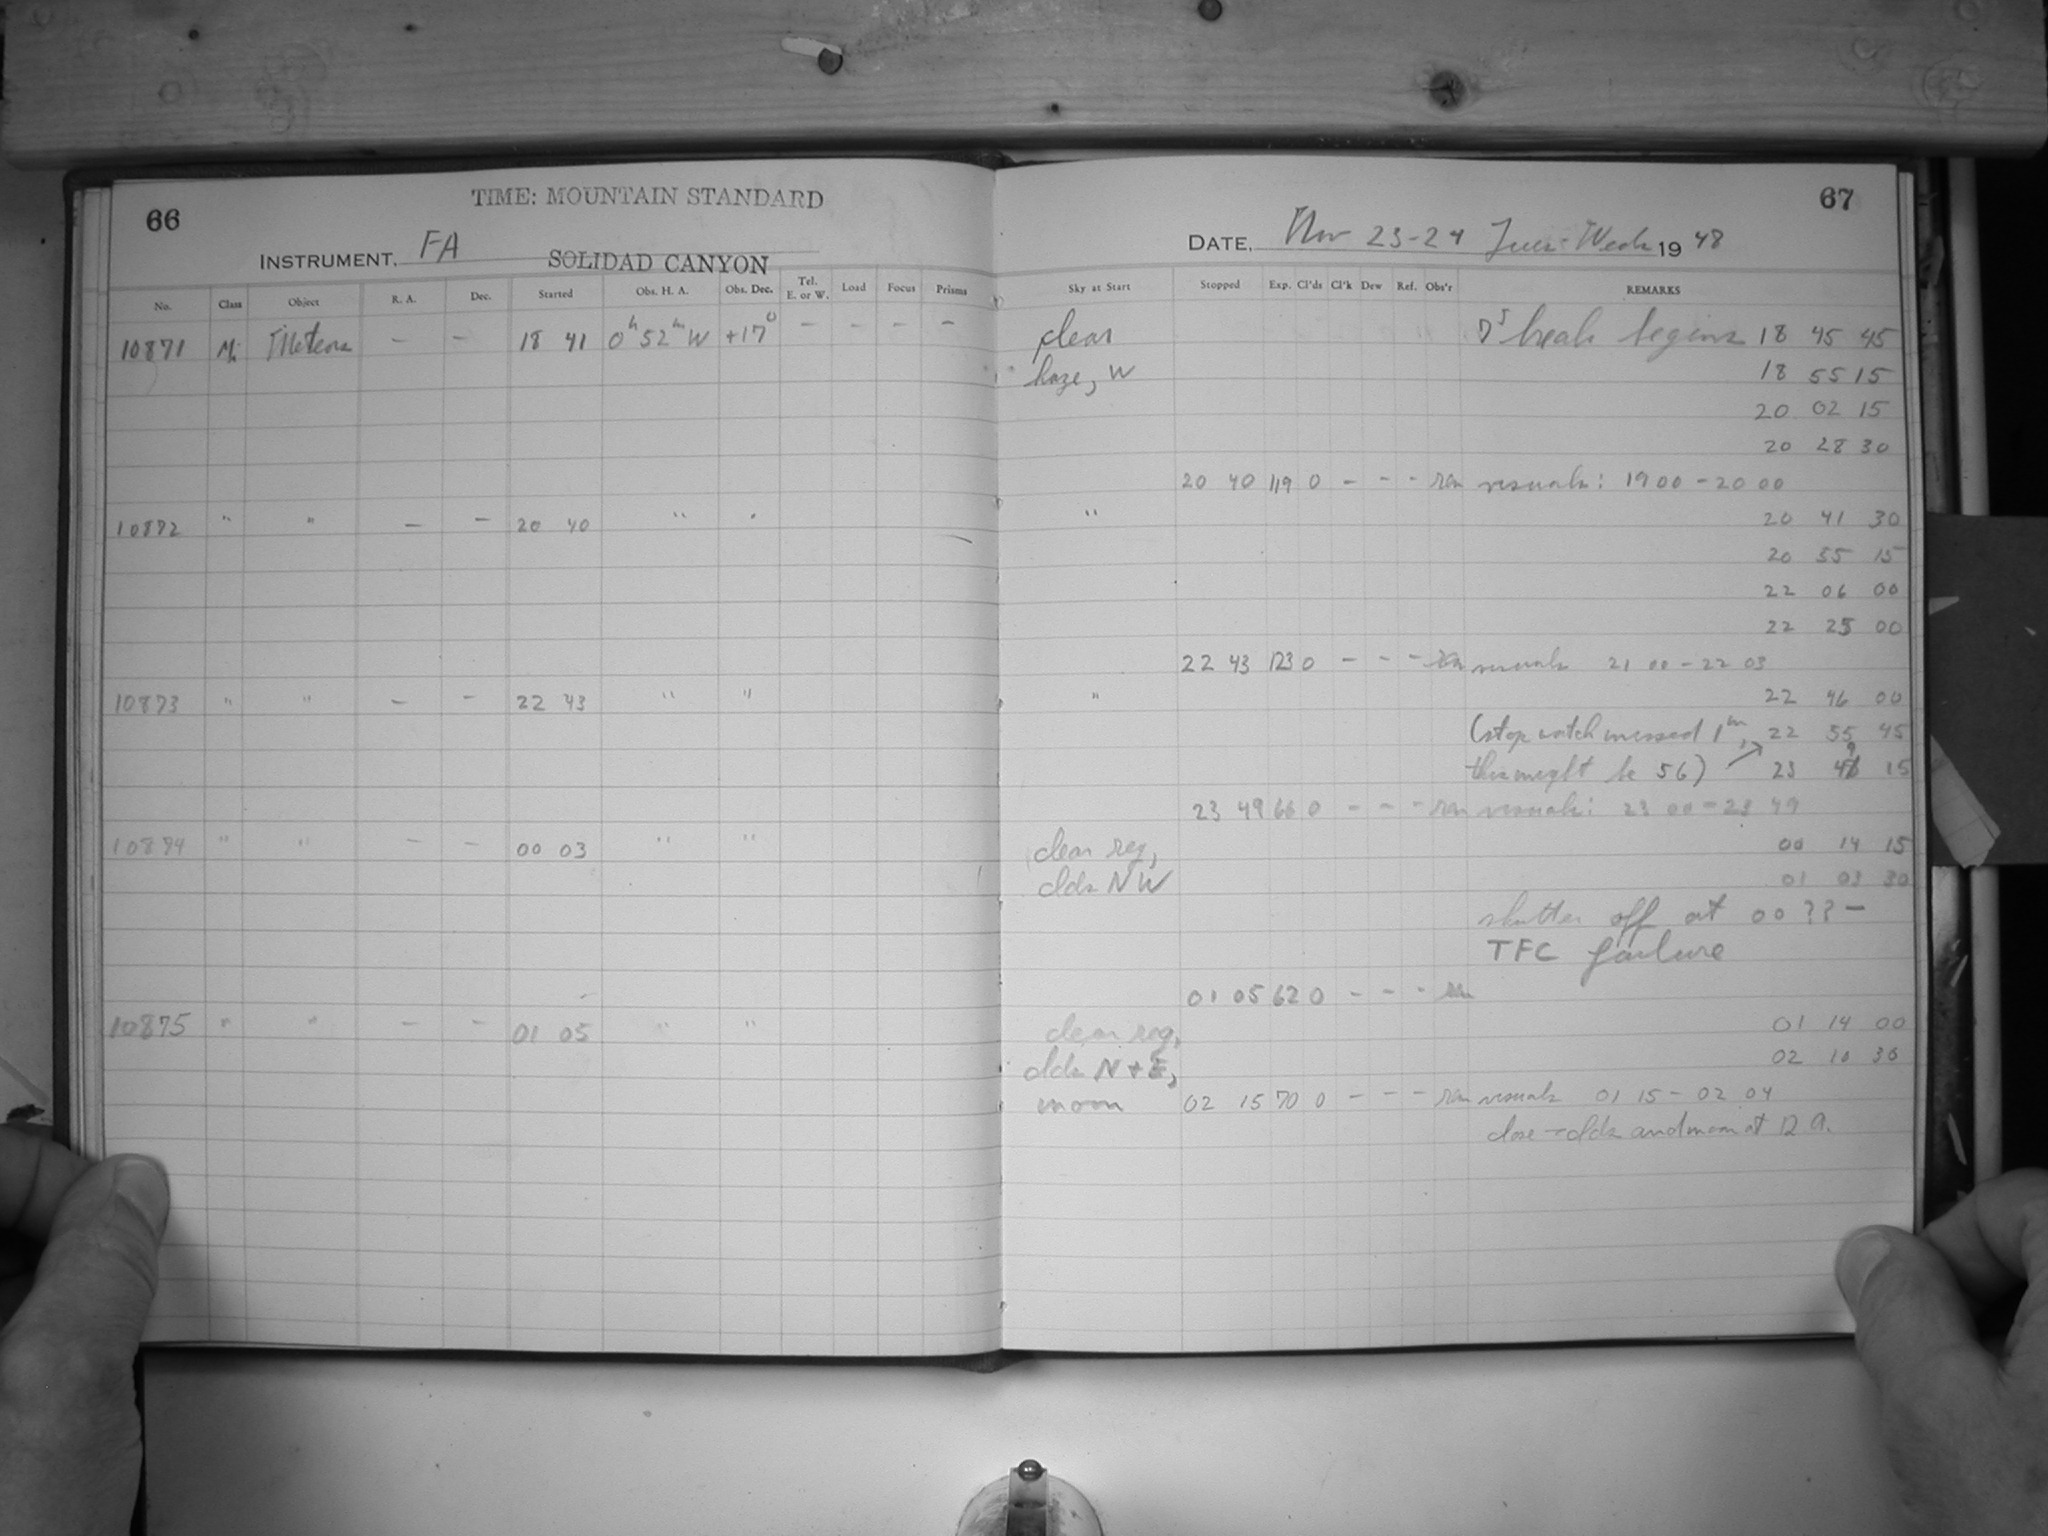 66
TIME: MOUNTAIN STANDARD
INSTRUMENT, FA
SOLIDAD CANYON
No. Class Object R. A. Dec. Started Obs. H. A. Obs. Dec. Tel. E. or W. Load Focus Prisms
10871 Mi Meteors - - 18 41 0h 52m W +17° - - - -
10872 " " - - 20 40 " "
10873 " " - - 22 43 " "
10874 " " - - 00 03 " "
10875 " " - - 01 05 " "
67
DATE, Nov 23-24 Tues-Weds 1948
Sky at Start Stopped Exp. Cl'ds Cl'k Dew Ref. Obs'r REMARKS
clear break begins 18 45 45
haze, W 18 55 15
20 02 15
20 28 30
20 40 119 0 - - - visuals: 19 00 - 20 00
" 20 41 30
20 55 15
22 06 00
22 25 00
22 43 123 0 - - - visuals 21 00 - 22 03
" 22 46 00
(stop watch missed 1m, 22 55 45
this might be 56) 23 15
23 49 66 0 - - - visuals: 23 00 - 23 49
clear reg, 00 14 15
clds NW 01 03 30
shutter off at 00 ?? -
TFC failure
01 05 62 0 - - -
clear reg, 01 14 00
clds N + E, 02 10 30
moon 02 15 70 0 - - - visuals 01 15 - 02 04
close - clds and moon at D.A.